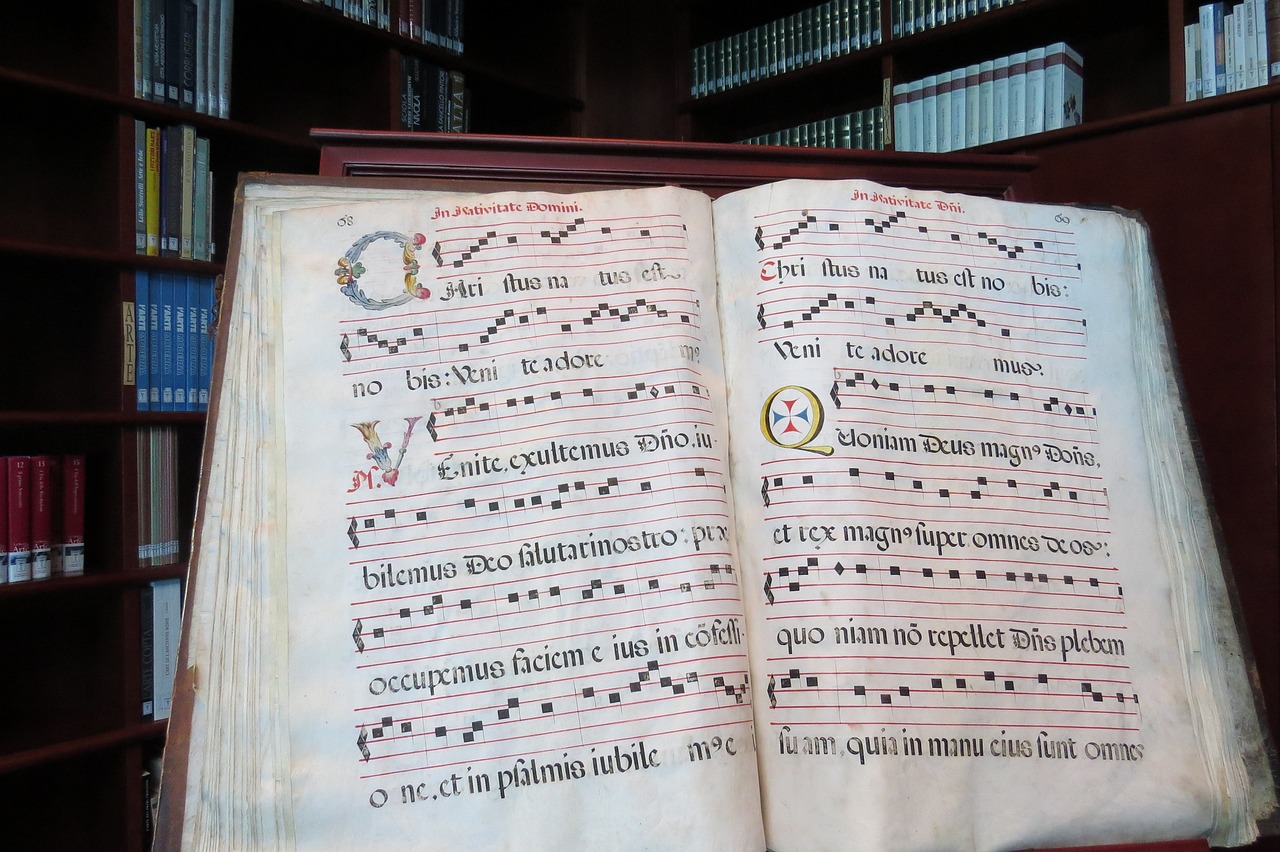 68
In Nativitate Domini.
CHri stus na tus est
no bis: Veni te adore m9
Ps. VEnite, exultemus Dño, iu-
bilemus Deo salutari nostro: pre
occupemus faciem e ius in cõfessi-
o ne, et in psalmis iubile m9 e
60
In Nativitate Dñi.
Chri stus na tus est no bis:
Veni te adore mus.
Quoniam Deus magn9 Doñs,
et rex magn9 super omnes deos:
quo niam nõ repellet Dñs plebem
su am, quia in manu eius sunt omnes
ARTE
L'ARTE
L'ARTE
L'ARTE
L'ARTE
L'ARTE
12
13